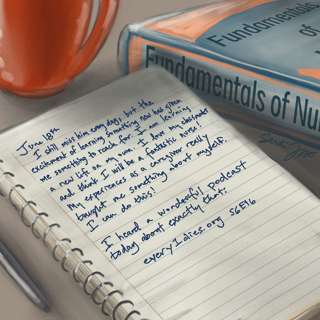 Fundamentals
of
Nursi
Fundamentals of Nu
June 18th
I still miss him every day, but the
excitement of learning something new has given
me something to reach for. I am learning
a new life on my own. I love my classmates
and think I will be a fantastic nurse!
My experiences as a caregiver really
taught me something about myself.
I can do this!
I heard a wonderful podcast
today about exactly that:
every1dies.org S6E16